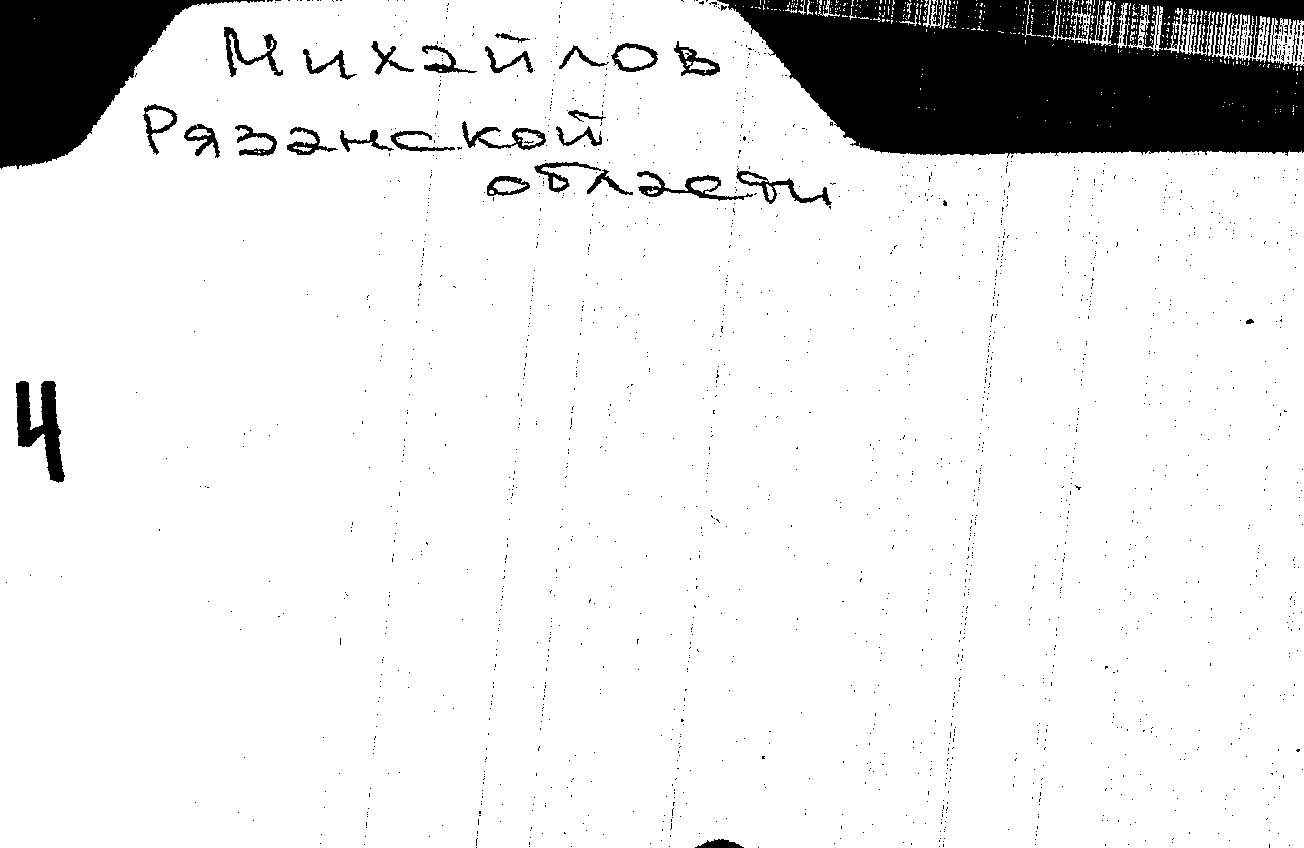 Михайлов
Рязанской
области
4